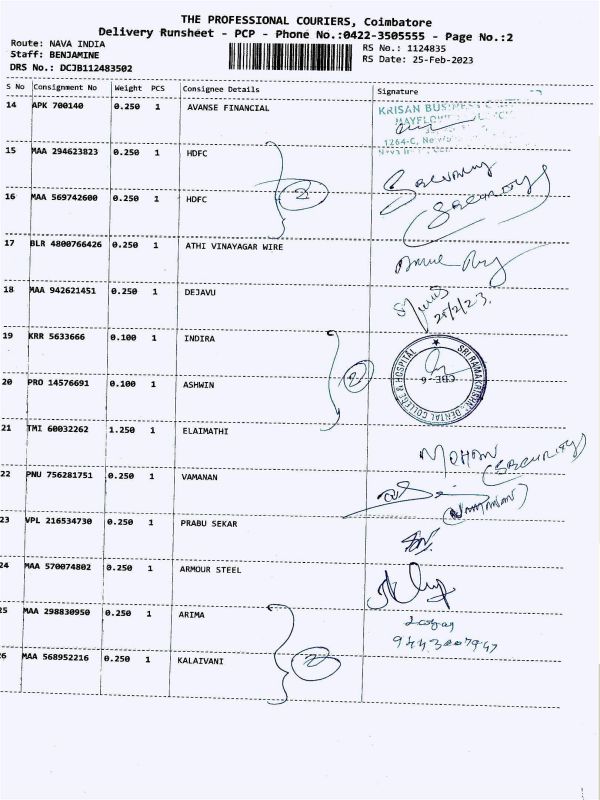 THE PROFESSIONAL COURIERS, Coimbatore
Delivery Runsheet - PCP - Phone No.:0422-3505555 - Page No.:2
Route: NAVA INDIA
Staff: BENJAMINE
DRS No.: DCJB112483502
RS No.: 1124835
RS Date: 25-Feb-2023
S No Consignment No Weight PCS Consignee Details Signature
14 APK 700140 0.250 1 AVANSE FINANCIAL
KRISAN BUSINESS
MAYFLOW
1264-C,
15 MAA 294623823 0.250 1 HDFC
2
Security
16 MAA 569742600 0.250 1 HDFC
Security
17 BLR 4800766426 0.250 1 ATHI VINAYAGAR WIRE
18 MAA 942621451 0.250 1 DEJAVU
25/2/23.
19 KRR 5633666 0.100 1 INDIRA
SRI RAMAKRISHNA DENTAL COLLEGE & HOSPITAL
CBE - 6
2
20 PRO 14576691 0.100 1 ASHWIN
21 TMI 60032262 1.250 1 ELAIMATHI
MOHAN
(SECURITY)
22 PNU 756281751 0.250 1 VAMANAN
(VAMANAN)
23 VPL 216534730 0.250 1 PRABU SEKAR
24 MAA 570074802 0.250 1 ARMOUR STEEL
25 MAA 298830950 0.250 1 ARIMA
9443007947
2
6 MAA 568952216 0.250 1 KALAIVANI